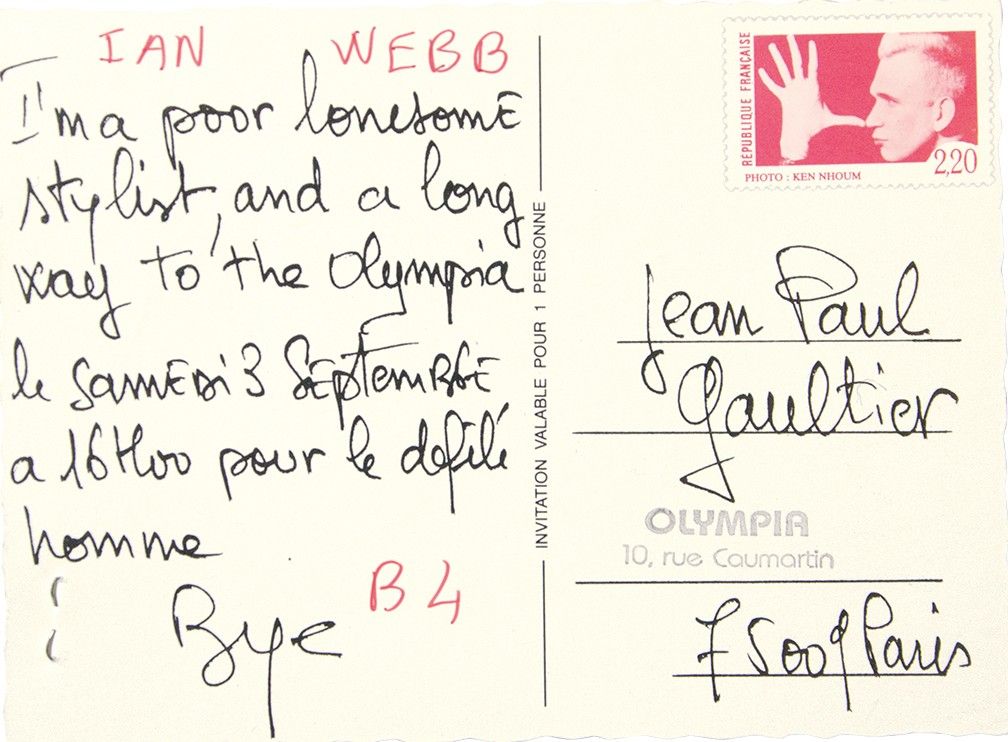 IAN WEBB
I'm a poor lonesome
stylist, and a long
way to the Olympia
le samedi 3 septembre
a 16H00 pour le defilé
homme
Bye
B4
INVITATION VALABLE POUR 1 PERSONNE
RÉPUBLIQUE FRANÇAISE
2,20
PHOTO : KEN NHOUM
Jean Paul
Gaultier
OLYMPIA
10, rue Caumartin
75009 Paris